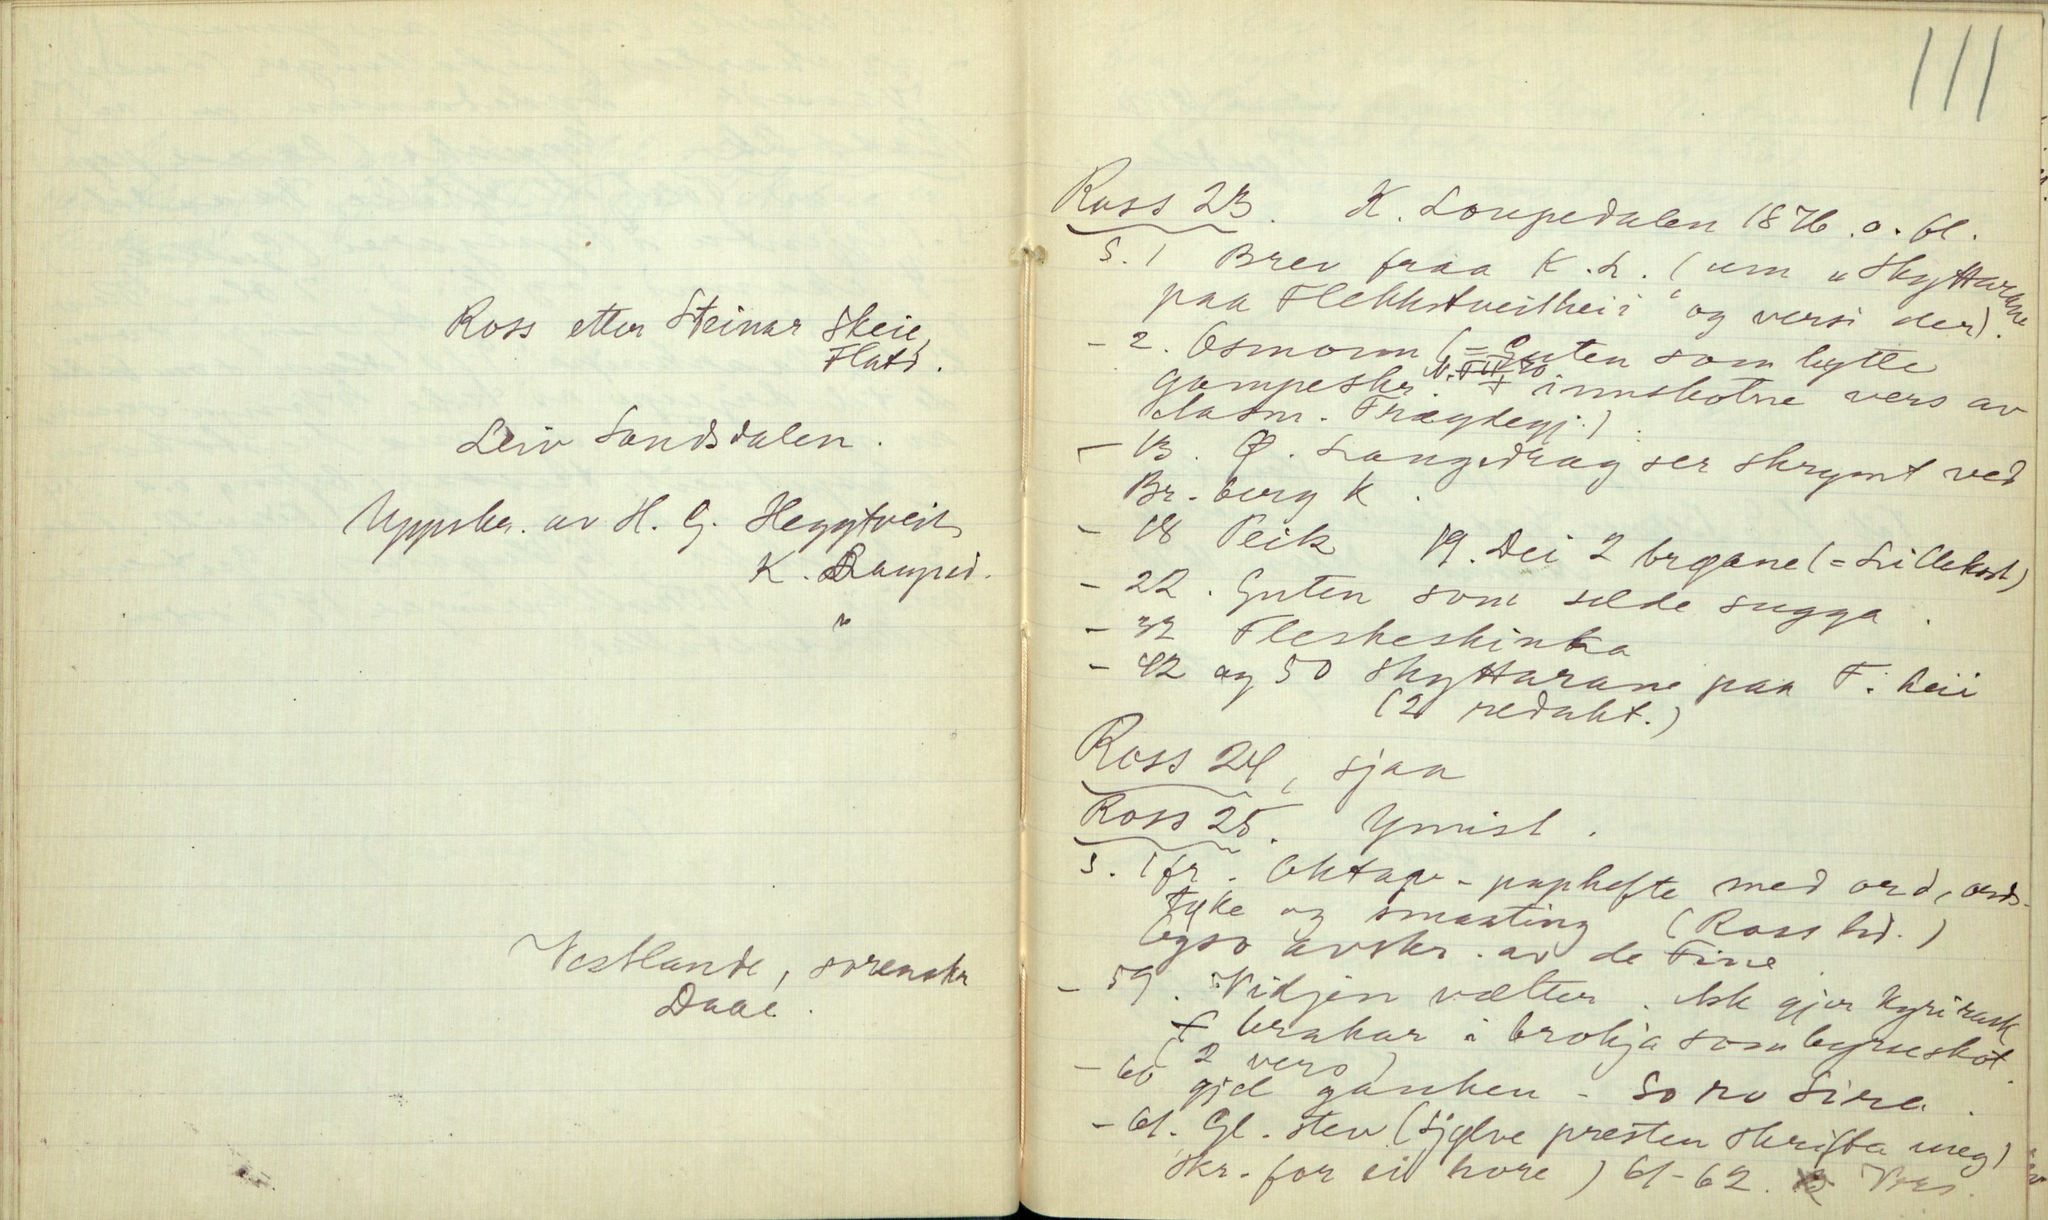 Ross etter Steinar Skeie,
Flatd.
Leiv Sandsdalen.
Uppskr. av H. G. Heggtveit
K. Loupid.
"
Vestlandi, sorenskr
Daae.
111
Ross 23. K. Loupedalen 1876. o. fl.
S. 1 Brev fraa K. L. (um "Skyttarane
paa Flekkstveitheii" og versi der).
- 2. Osmonn (= Guten som bytte
gampeskr innskotne vers av
Aasm. Frægdegj.)
- 13. Ø. Langedrag ser skrymt ved
Br. berg K.
- 18 Peik 19. Dei 2 brørane (= Lillekort)
- 22. Guten som selde sugga.
- 32 Fleskeskinka
- 42 og 50 Skyttarane paa F. heii
(2 redakt.)
Ross 24, sjaa
Ross 25. Ymist.
S. 1 fr. Oktav-paphefte med ord, ords-
tyke og smaating (Ross hd.)
Ogso avskr. av de Fine
- 59. Vidjin vætter. Ask gjer kyrirask
brakar i brokja som byrseskot.
(2 vers)
- 60 gjel gauken - so ro Sire.
- 61. Gl. stev (Sjølve presten skrifta meg)
skr. for ei hore) 61-62. Vers.